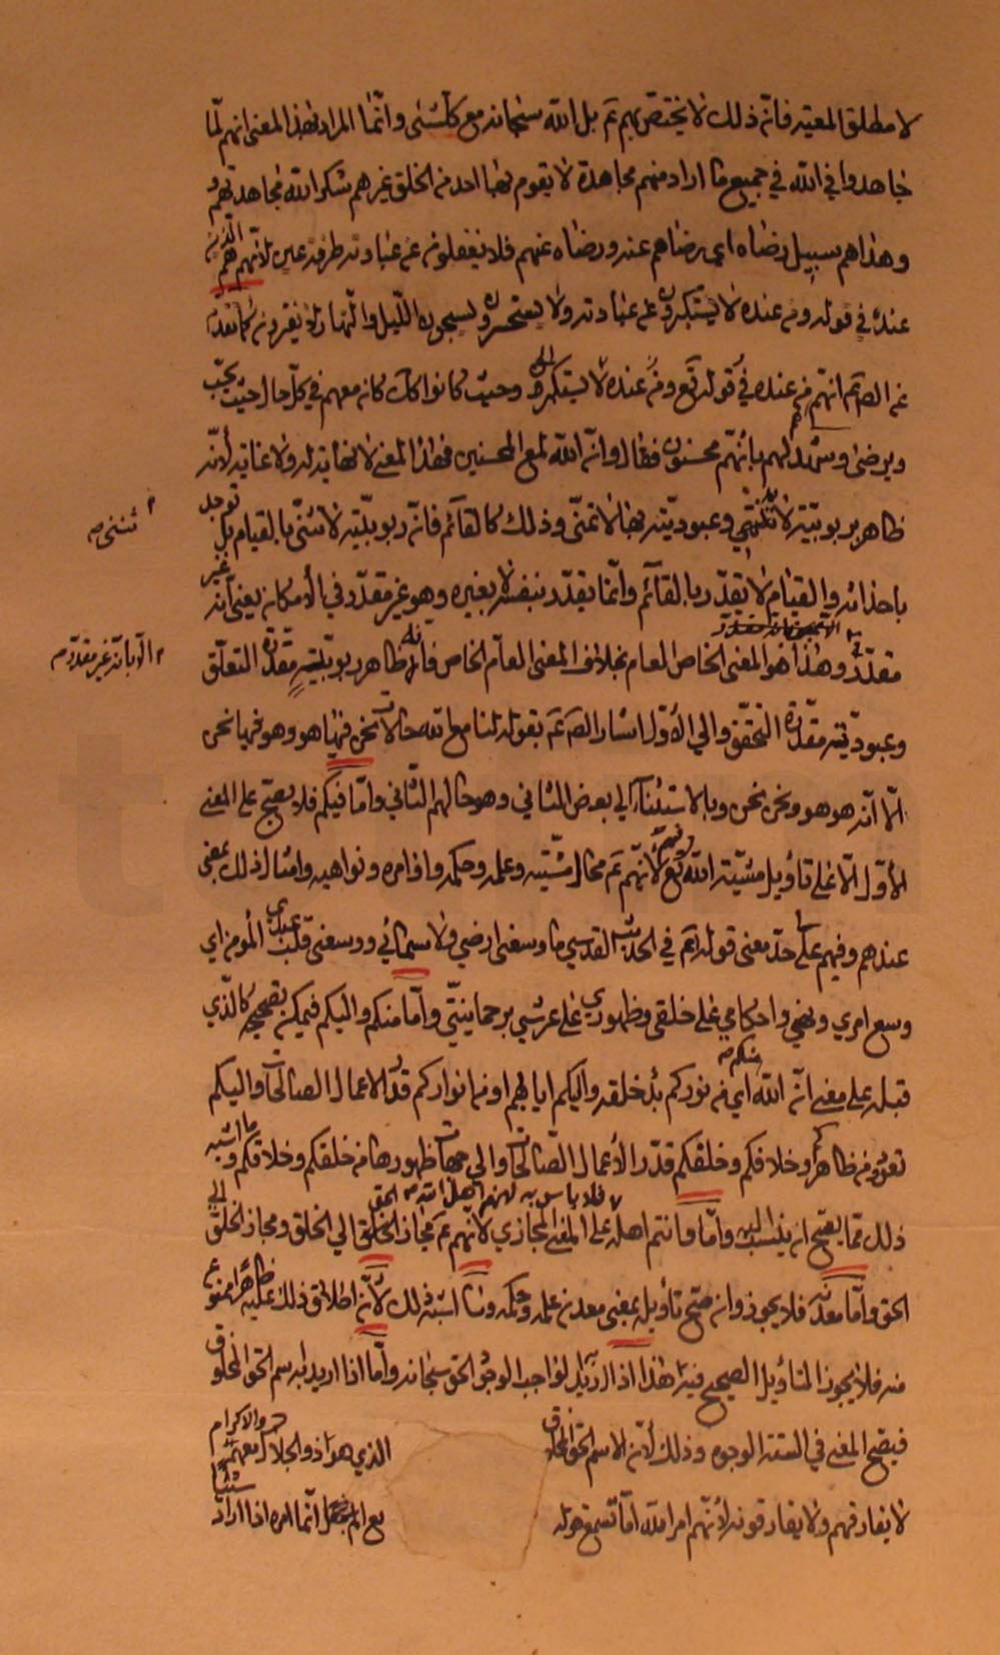 لا مطلق المعية فانّ ذلك لا يختصّ بهم عم بل الله سبحانه مع كلّ شئ وانّما المراد بهذا المعنى انهم لمّا
جاهدوا في الله في جميع ما اراد منهم مجاهدة لا يقوم بها احد من الخلق غيرهم شكر الله مجاهدتهم
وهداهم سبيل رضاه اي رضاهم عنه ورضاه عنهم فلا يغفلون عن عبادته طرفة عين لانّهم هم الذين
عنده في قوله ومن عنده لا يستكبرون عن عبادته ولا يستحسرون يسبحون الليل والنهار لا يفترون كما تقدم
عن الص عم انّهم من عنده في قوله تع ومن عنده لا يستكبرون الخ وحيث كانوا كك كان معهم في كلّ حال حيث يحبّ
ويرضى وشهد لهم بانّهم محسنون فقال وانّ الله لمع المحسنين فهذا المعنى لا نهاية له ولا غاية لانّه
ظاهر ربوبيّته لا تثنّى وعبوديّته بها لا تثنّى وذلك كالقائم فانّ ربوبيّته لا تثنّى بالقيام بل توجد
باحداثه والقيام لا يقدّر بالقائم وانّما يقدّر بنفسه لا بغيره وهو غير مقدّر في الأمكان يعنى انّه غير
مقدّر وهذا هو المعنى الخاص العام بخلاف المعنى العامّ الخاص فانّه ظاهر ربوبيّته مقدّرة التعلّق
الّا بانّه غير مقدّر
وعبوديّته مقدّرة التحقّق والى الاوّل اشار الص عم بقوله لنا مع الله حالات نحن فيها هو وهو فيها نحن
الّا انّه هو هو ونحن نحن وبالاستثناء الى بعض الثاني وهو حالهم الثاني وامّا فيكم فلا يصحّ على المعنى
الأوّل الّا على تأويل مشيّته الله تع وفيهم لأنّهم عم محالّ مشيّته وعلمه وحكمه واوامره ونواهيه وامثال ذلك بمعنى
عندهم وفيهم على حدّ معنى قوله تع في الحديث القدسي ما وسعنى ارضي ولا سمائي ووسعنى قلب عبدي المؤمن اي
وسع امري ونهي واحكامي على خلقى وظهوري على عرشي برحمانيتّي وامّا منكم واليكم فيمكن تصحيحه كالّذي
قبله على معنى انّ الله منكم اي من نوركم بدء خلقه واليكم ايابهم او من انواركم قدّر الاعمال الصالحات واليكم
تعود من ظاهركم وخلافكم وخلقكم قدّر الأعمال الصّالحات والى جهات ظهورها من خلقكم وخلافكم وما اشبه
ذلك ممّا يصحّ ان ينسب اليه فلا باس به وامّا وانتم اهله على المعنى المجازي لأنّهم عم مجاز الحق الى الخلق ومجاز الخلق الى
الحق وامّا معدنه فلا يجوز وان صحّ تأويله بمعنى معدن علمه وحكمه وما اشبه ذلك لأنّ اطلاق ذلك عليه ظاهرا ممنوع
منه فلا يجوز التأويل الصحيح فيه هذا اذا اريد لواجب الوجود الحق سبحانه وامّا اذا اريد به اسم الحق المخلوق
فيصحّ المعنى في الستة الوجوه وذلك لأنّ الاسم الحق المخلوق الذي هو ذو الجلال والاكرام معهم
لا يفارقهم ولا يفارقونه لأنّهم امر الله امّا تسمع قوله تع انّما امره اذا اراد شيئا